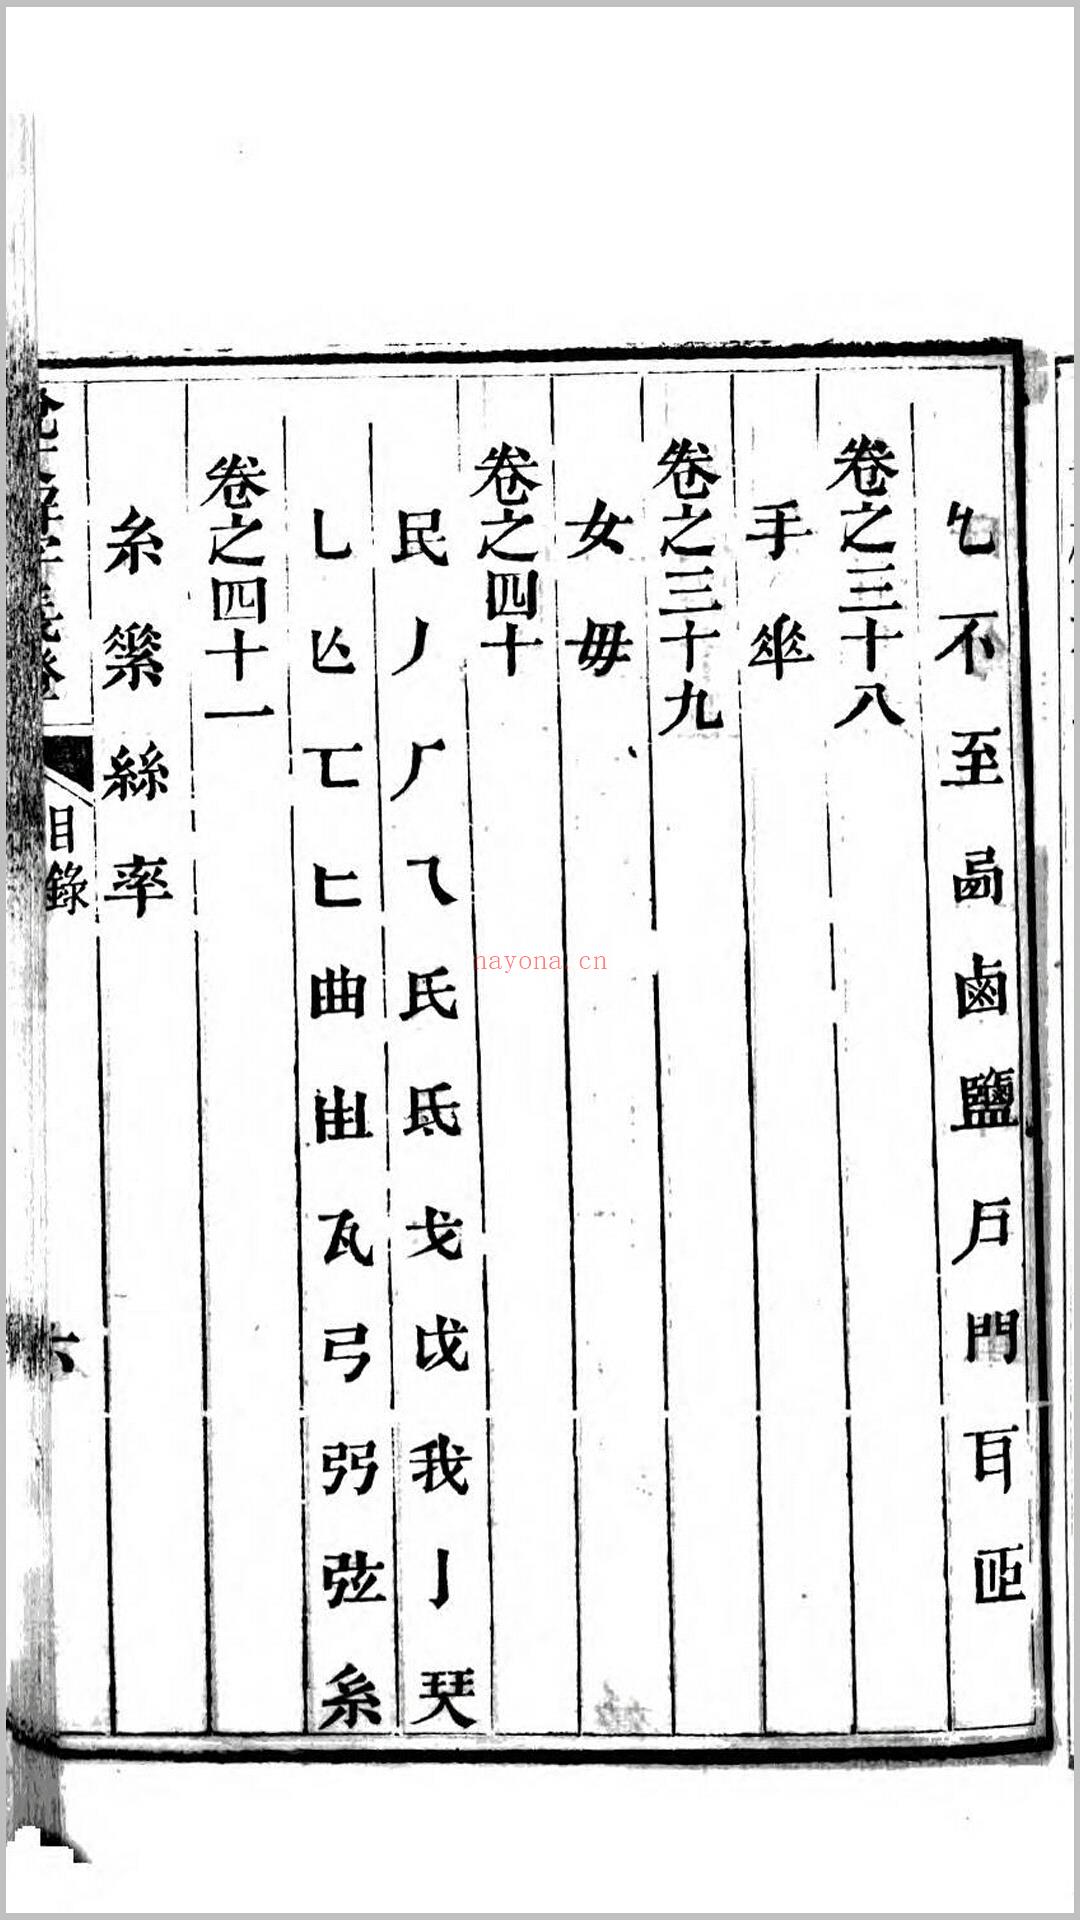 𠃉不至㢴鹵鹽戶門耳𦣝
卷之三十八
手𠦬
卷之三十九
女毋
卷之四十
民丿𠂆乁氏氐戈戉我亅琴
𠃊亾匸匚曲甾瓦弓弜弦糸
卷之四十一
糸縏絲率
目錄
六
nayona.cn